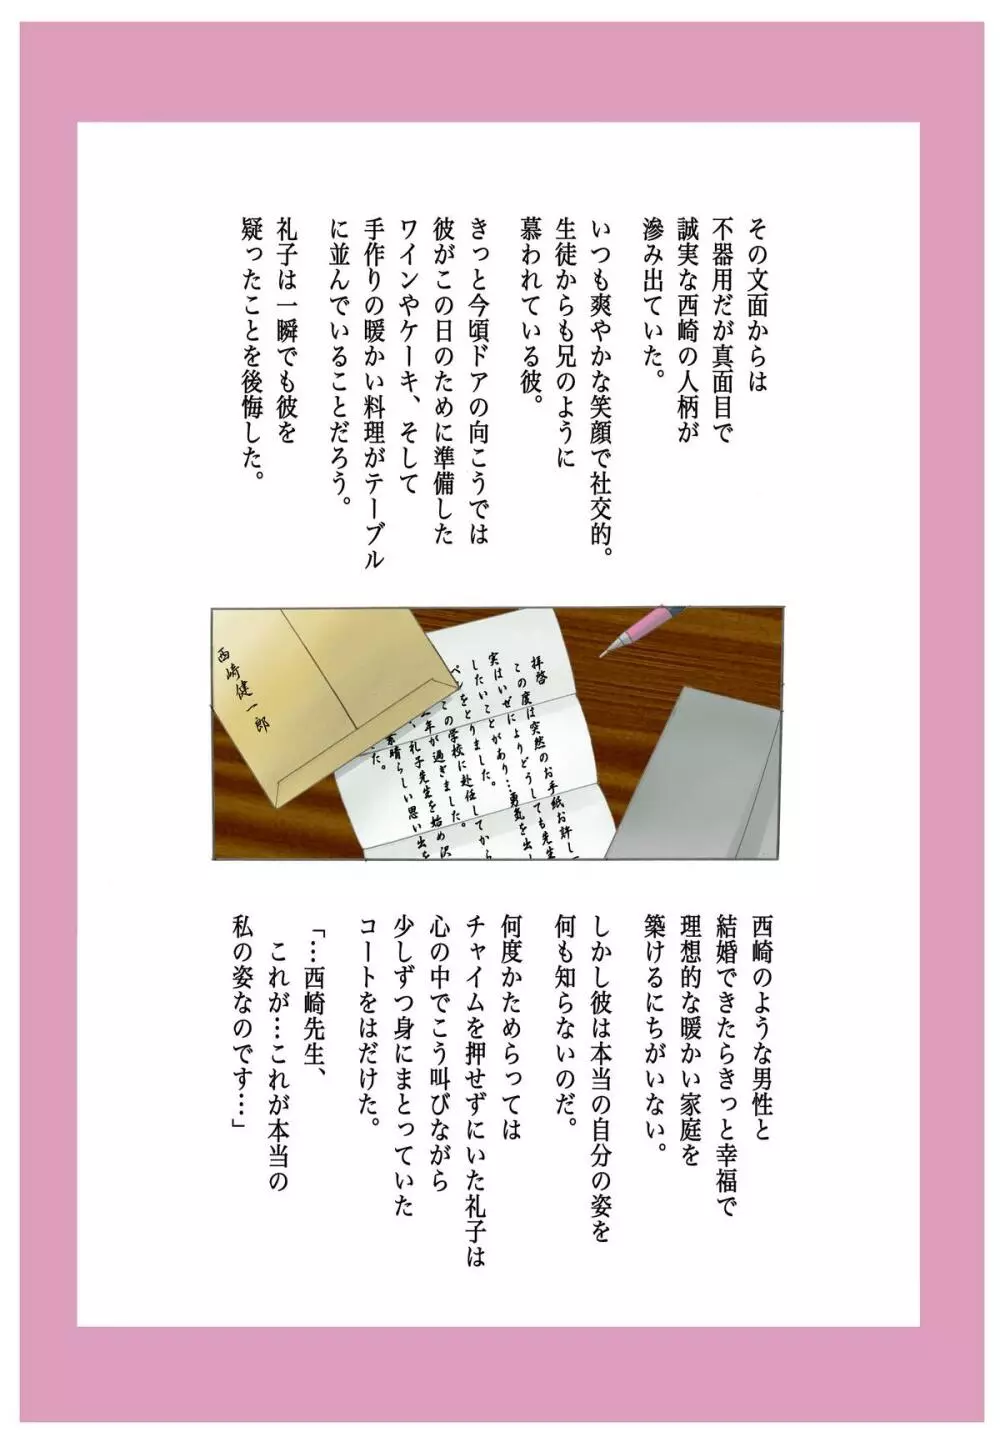 その文面からは
不器用だが真面目で
誠実な西崎の人柄が
滲み出ていた。
いつも爽やかな笑顔で社交的。
生徒からも兄のように
慕われている彼。
きっと今頃ドアの向こうでは
彼がこの日のために準備した
ワインやケーキ、そして
手作りの暖かい料理がテーブル
に並んでいることだろう。
礼子は一瞬でも彼を
疑ったことを後悔した。
西崎健一郎
拝啓
この度は突然のお手紙お許し
実はいぜによりどうしても先生
したいことがあり…勇気を出し
ペンをとりました。
この学校に赴任してから
年が過ぎました。
礼子先生を始め沢
素晴らしい思い出を
た。
西崎のような男性と
結婚できたらきっと幸福で
理想的な暖かい家庭を
築けるにちがいない。
しかし彼は本当の自分の姿を
何も知らないのだ。
何度かためらっては
チャイムを押せずにいた礼子は
心の中でこう叫びながら
少しずつ身にまとっていた
コートをはだけた。
「…西崎先生、
これが…これが本当の
私の姿なのです…」